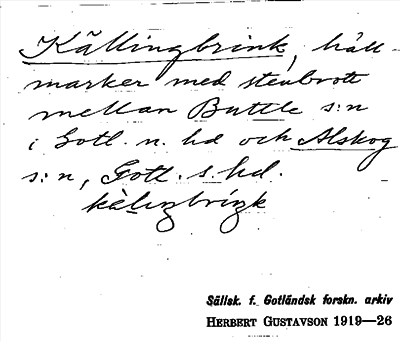 Källingbrink, häll-
marker med stenbrott
mellan Buttle s:n
i Gotl. n. hd och Alskog
s:n, Gotl. s. hd.
kèliŋbriŋk
Sällsk. f. Gotländsk forskn. arkiv
HERBERT GUSTAVSON 1919—26